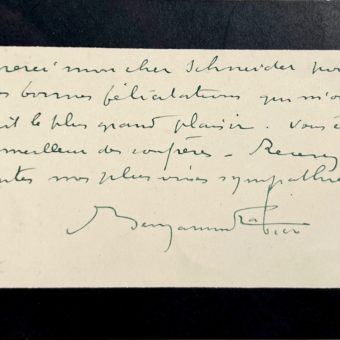 merci mon cher Schneider pour
es bonnes félicitations qui m'o
it le plus grand plaisir. Vous ê
meilleur des confrères – Recevez
tes mes plus vives sympathie
Benjamin Rabier